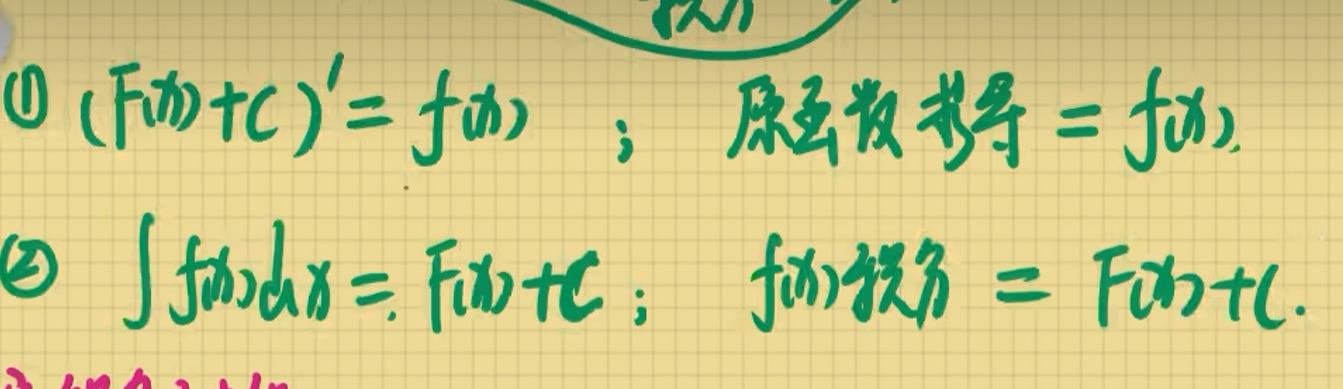 积分
① (F(x)+C)′= f(x) ; 原函数求导 = f(x).
② ∫f(x)dx = F(x)+C ; f(x)积分 = F(x)+C.